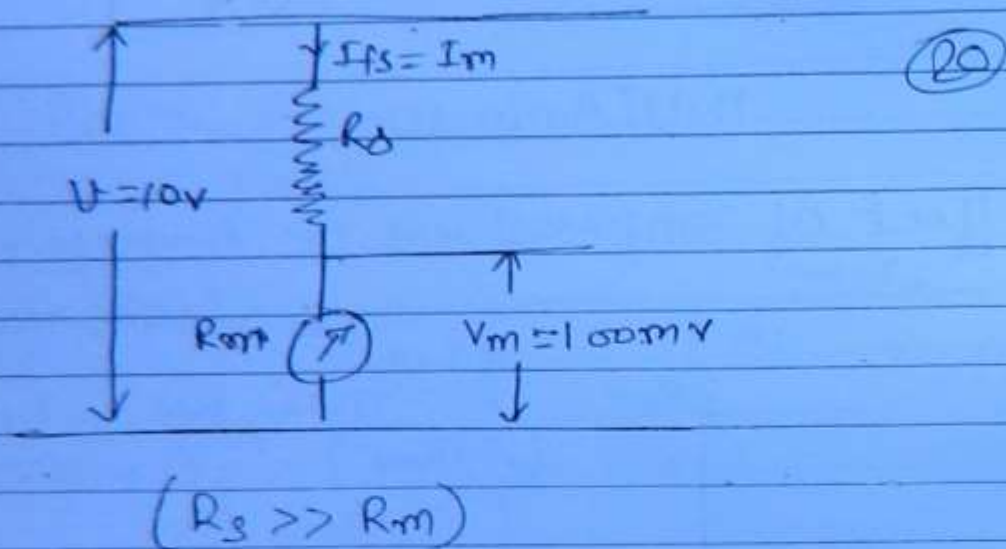 Ifs = Im
20
Rs
V = 10V
Rm
Vm = 100mV
(Rs >> Rm)